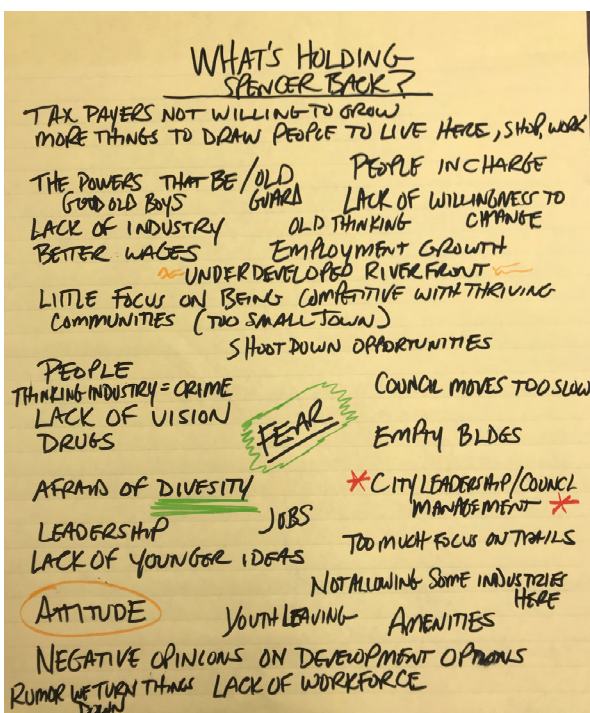 WHAT'S HOLDING
SPENCER BACK?
TAX PAYERS NOT WILLING TO GROW
MORE THINGS TO DRAW PEOPLE TO LIVE HERE, SHOP, WORK
PEOPLE IN CHARGE
THE POWERS THAT BE/OLD GUARD
GOOD OLD BOYS
LACK OF WILLINGNESS TO CHANGE
LACK OF INDUSTRY
OLD THINKING
BETTER WAGES
EMPLOYMENT GROWTH
UNDERDEVELOPED RIVERFRONT
LITTLE FOCUS ON BEING COMPETITIVE WITH THRIVING
COMMUNITIES (TOO SMALL TOWN)
SHOOT DOWN OPPORTUNITIES
PEOPLE
THINKING INDUSTRY = CRIME
COUNCIL MOVES TOO SLOW
LACK OF VISION
FEAR
DRUGS
EMPTY BLDGS
AFRAID OF DIVESITY
CITY LEADERSHIP/COUNCL
MANAGEMENT
LEADERSHIP
JOBS
TOO MUCH FOCUS ON TRAILS
LACK OF YOUNGER IDEAS
NOT ALLOWING SOME INDUSTRIES
HERE
ATTITUDE
YOUTH LEAVING
AMENITIES
NEGATIVE OPINIONS ON DEVELOPMENT OPTIONS
RUMOR WE TURN THINGS
DOWN
LACK OF WORKFORCE